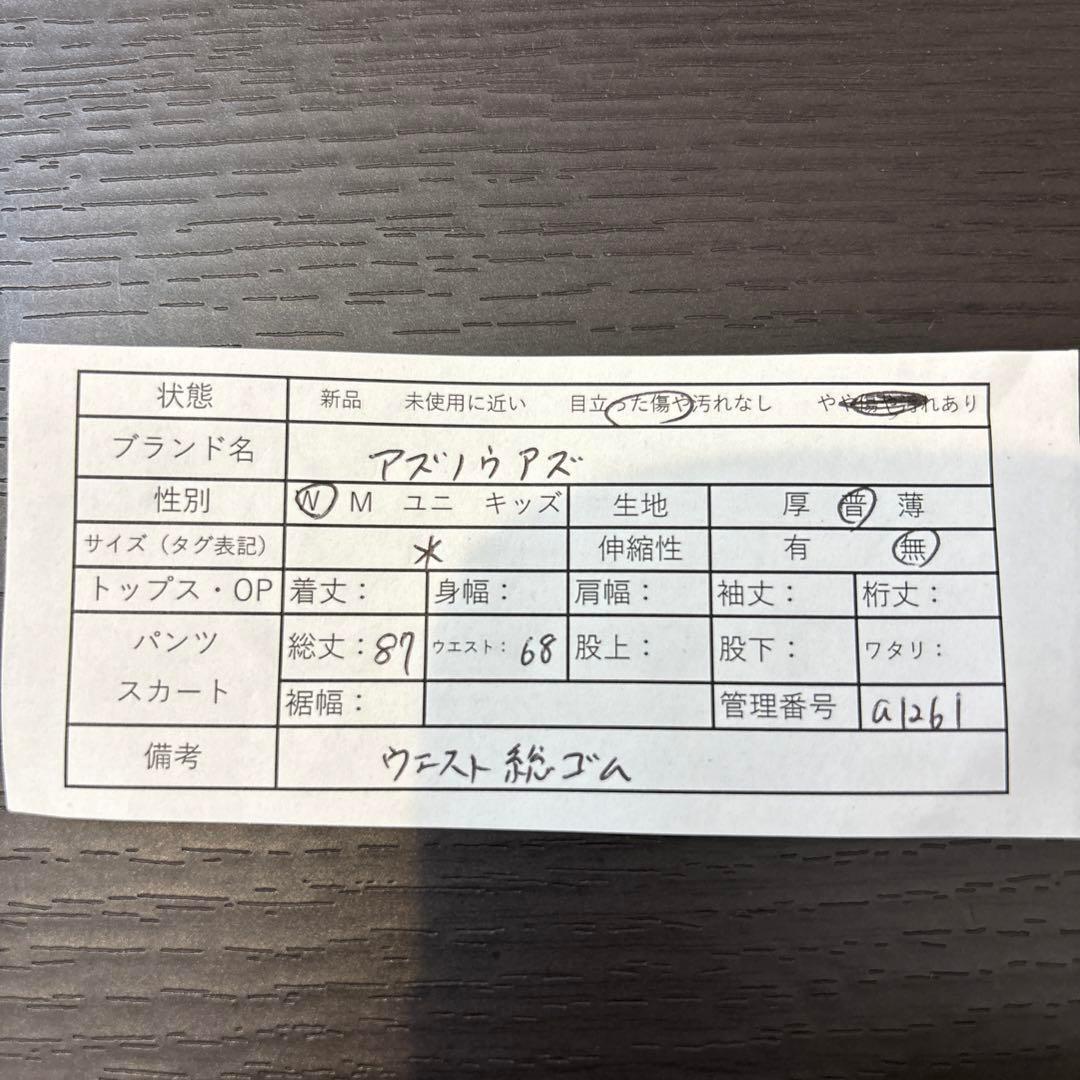 状態 新品 未使用に近い 目立った傷や汚れなし やや傷や汚れあり
ブランド名 アズノウアズ
性別 W M ユニ キッズ 生地 厚 普 薄
サイズ（タグ表記） 伸縮性 有 無
トップス・OP 着丈： 身幅： 肩幅： 袖丈： 桁丈：
パンツ スカート 総丈：87 ウエスト：68 股上： 股下： ワタリ：
裾幅： 管理番号 a1261
備考 ウエスト総ゴム